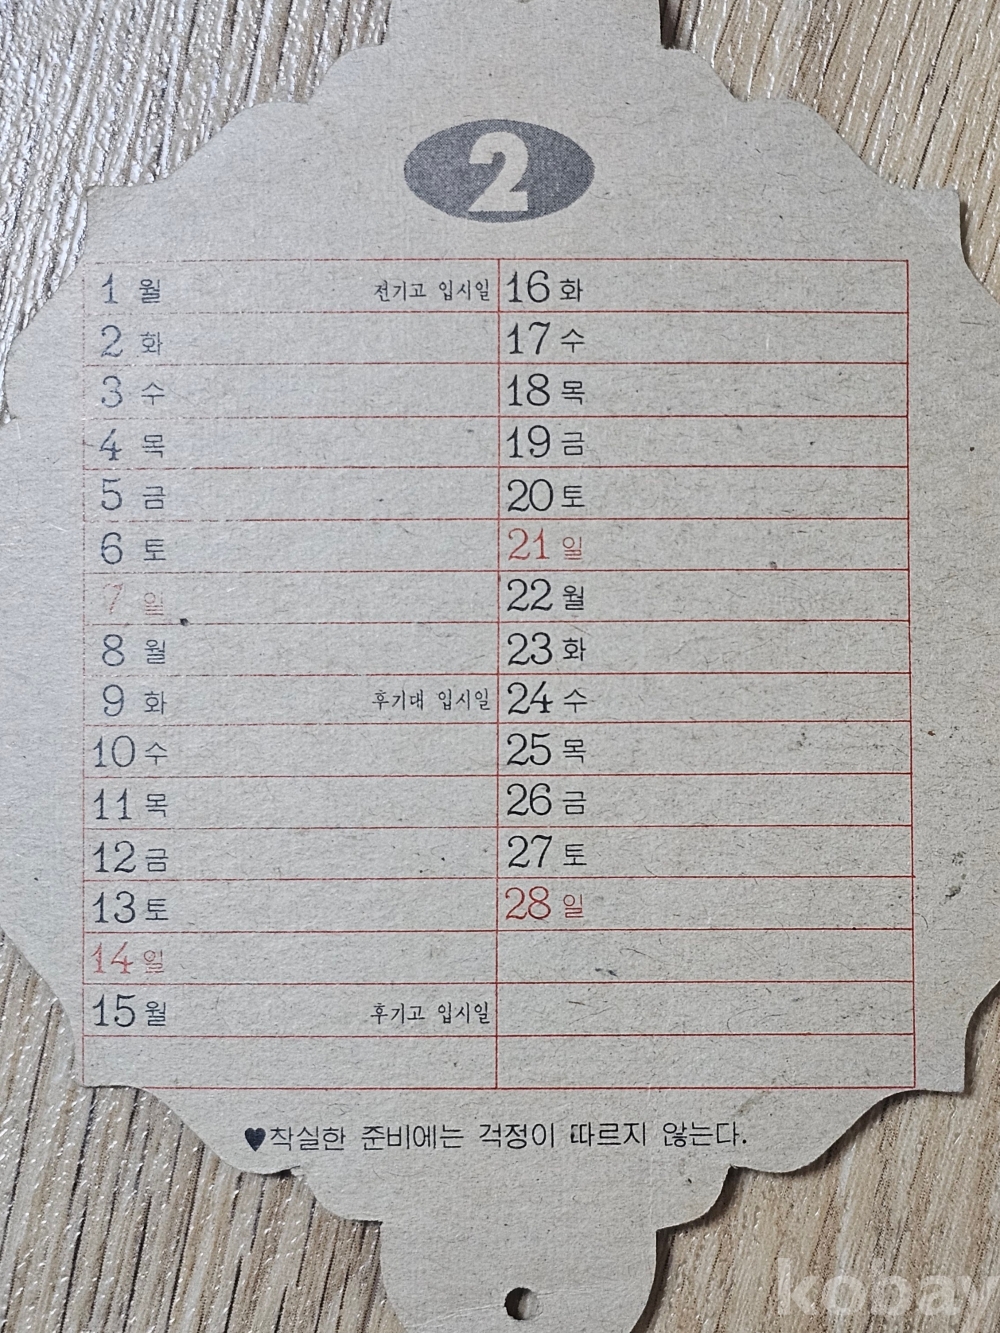 2
1 월 전기고 입시일
2 화
3 수
4 목
5 금
6 토
7 일
8 월
9 화 후기대 입시일
10 수
11 목
12 금
13 토
14 일
15 월 후기고 입시일
16 화
17 수
18 목
19 금
20 토
21 일
22 월
23 화
24 수
25 목
26 금
27 토
28 일
♥착실한 준비에는 걱정이 따르지 않는다.
kobay